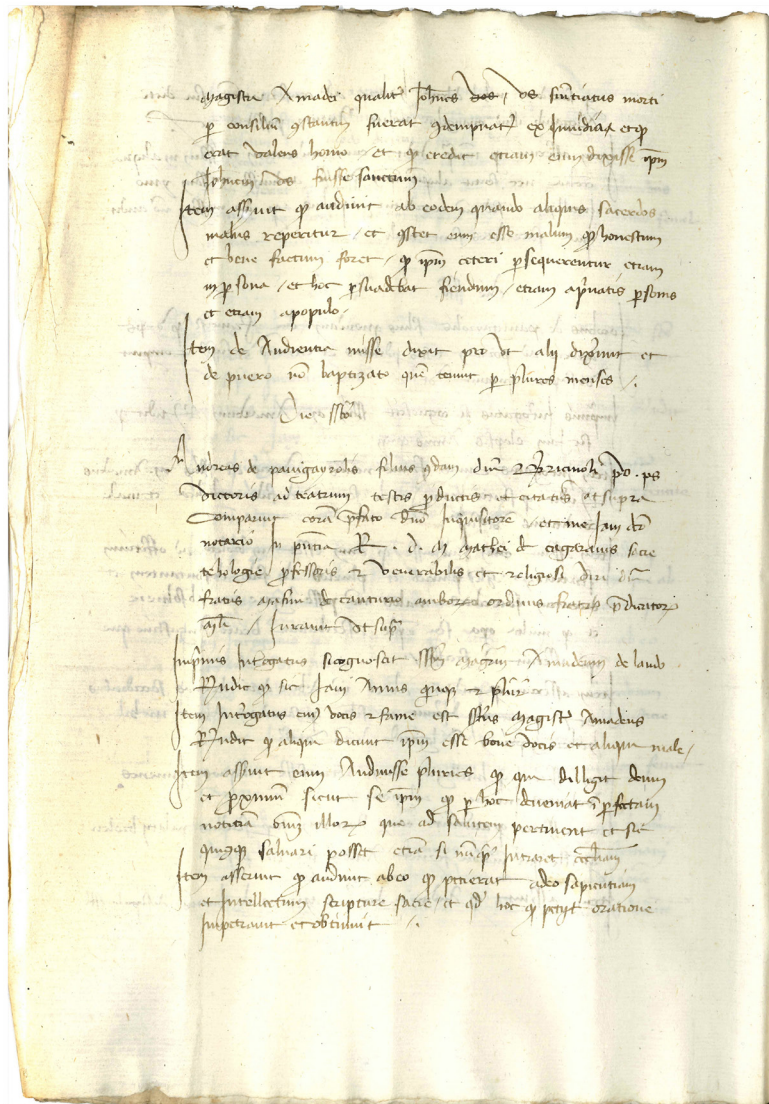 magistro Amadeo qualit Johnes hos us sentenciatus morti
p consiliu gstantih fuerat gdempnat ex invidia et q
erat valens homo et q credit etiam eum dixisse ipm
Johnem us fuisse sanctum
Item asserit q audivit ab eodem quando aliquis sacerdos
malus reperitur et gstet eum esse malum q honestum
et bene factum foret q ipm ceteri psequerentur etiam
in psona et hoc psuadebat fiendum etiam apvatis psonis
et etiam apopulo
Item de Audientia misse dixit pro ut alii dixerunt et
de puero no baptizato que tenuit p plures menses
Die
Andreas de panigarolis filius qdam dni po ps
doctoris ad teatrum testis pductus et citatus ut supra
Comparuit cora pfato dno Inquisitore et me Jam dco
notario In pntia R. d. M Mathei de sacre
tehologie pfessoris et venerabilis et religiosi viri dni
fratris de canturio amborum ordinis fratrum pdicator
mli Juravit ut sup
Inpmis Introgatus si cognoscit magrum Amadeum de laudo
Rndit q sic Jam Annis quinq et plur
Item Introgatus cui vocis et fame est magist Amadeus
Rndit q aliqui dicunt ipm esse bone vocis et aliqui male
Item asserit eum Audivisse pluries q qui dilligit deum
et pximum sicut se ipm q p hoc deveniat i pfectam
noticia omi illorum que ad salutem pertinent et sic
quisq salvari posset etia si nunq Intraret eccliam
Item asserit q audivit ab eo q petierat a deo sapientiam
et Intellectum scripture sacre et qd hoc q petiit oratione
Impetravit et obtinuit